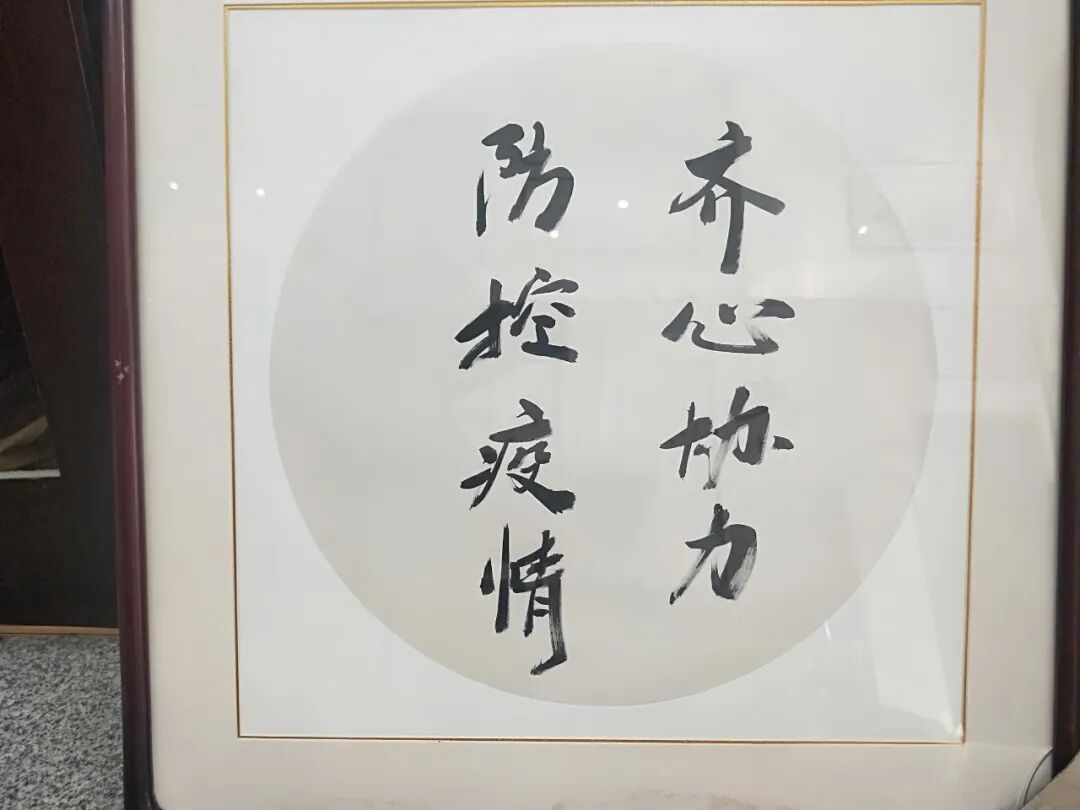 齐心协力
防控疫情